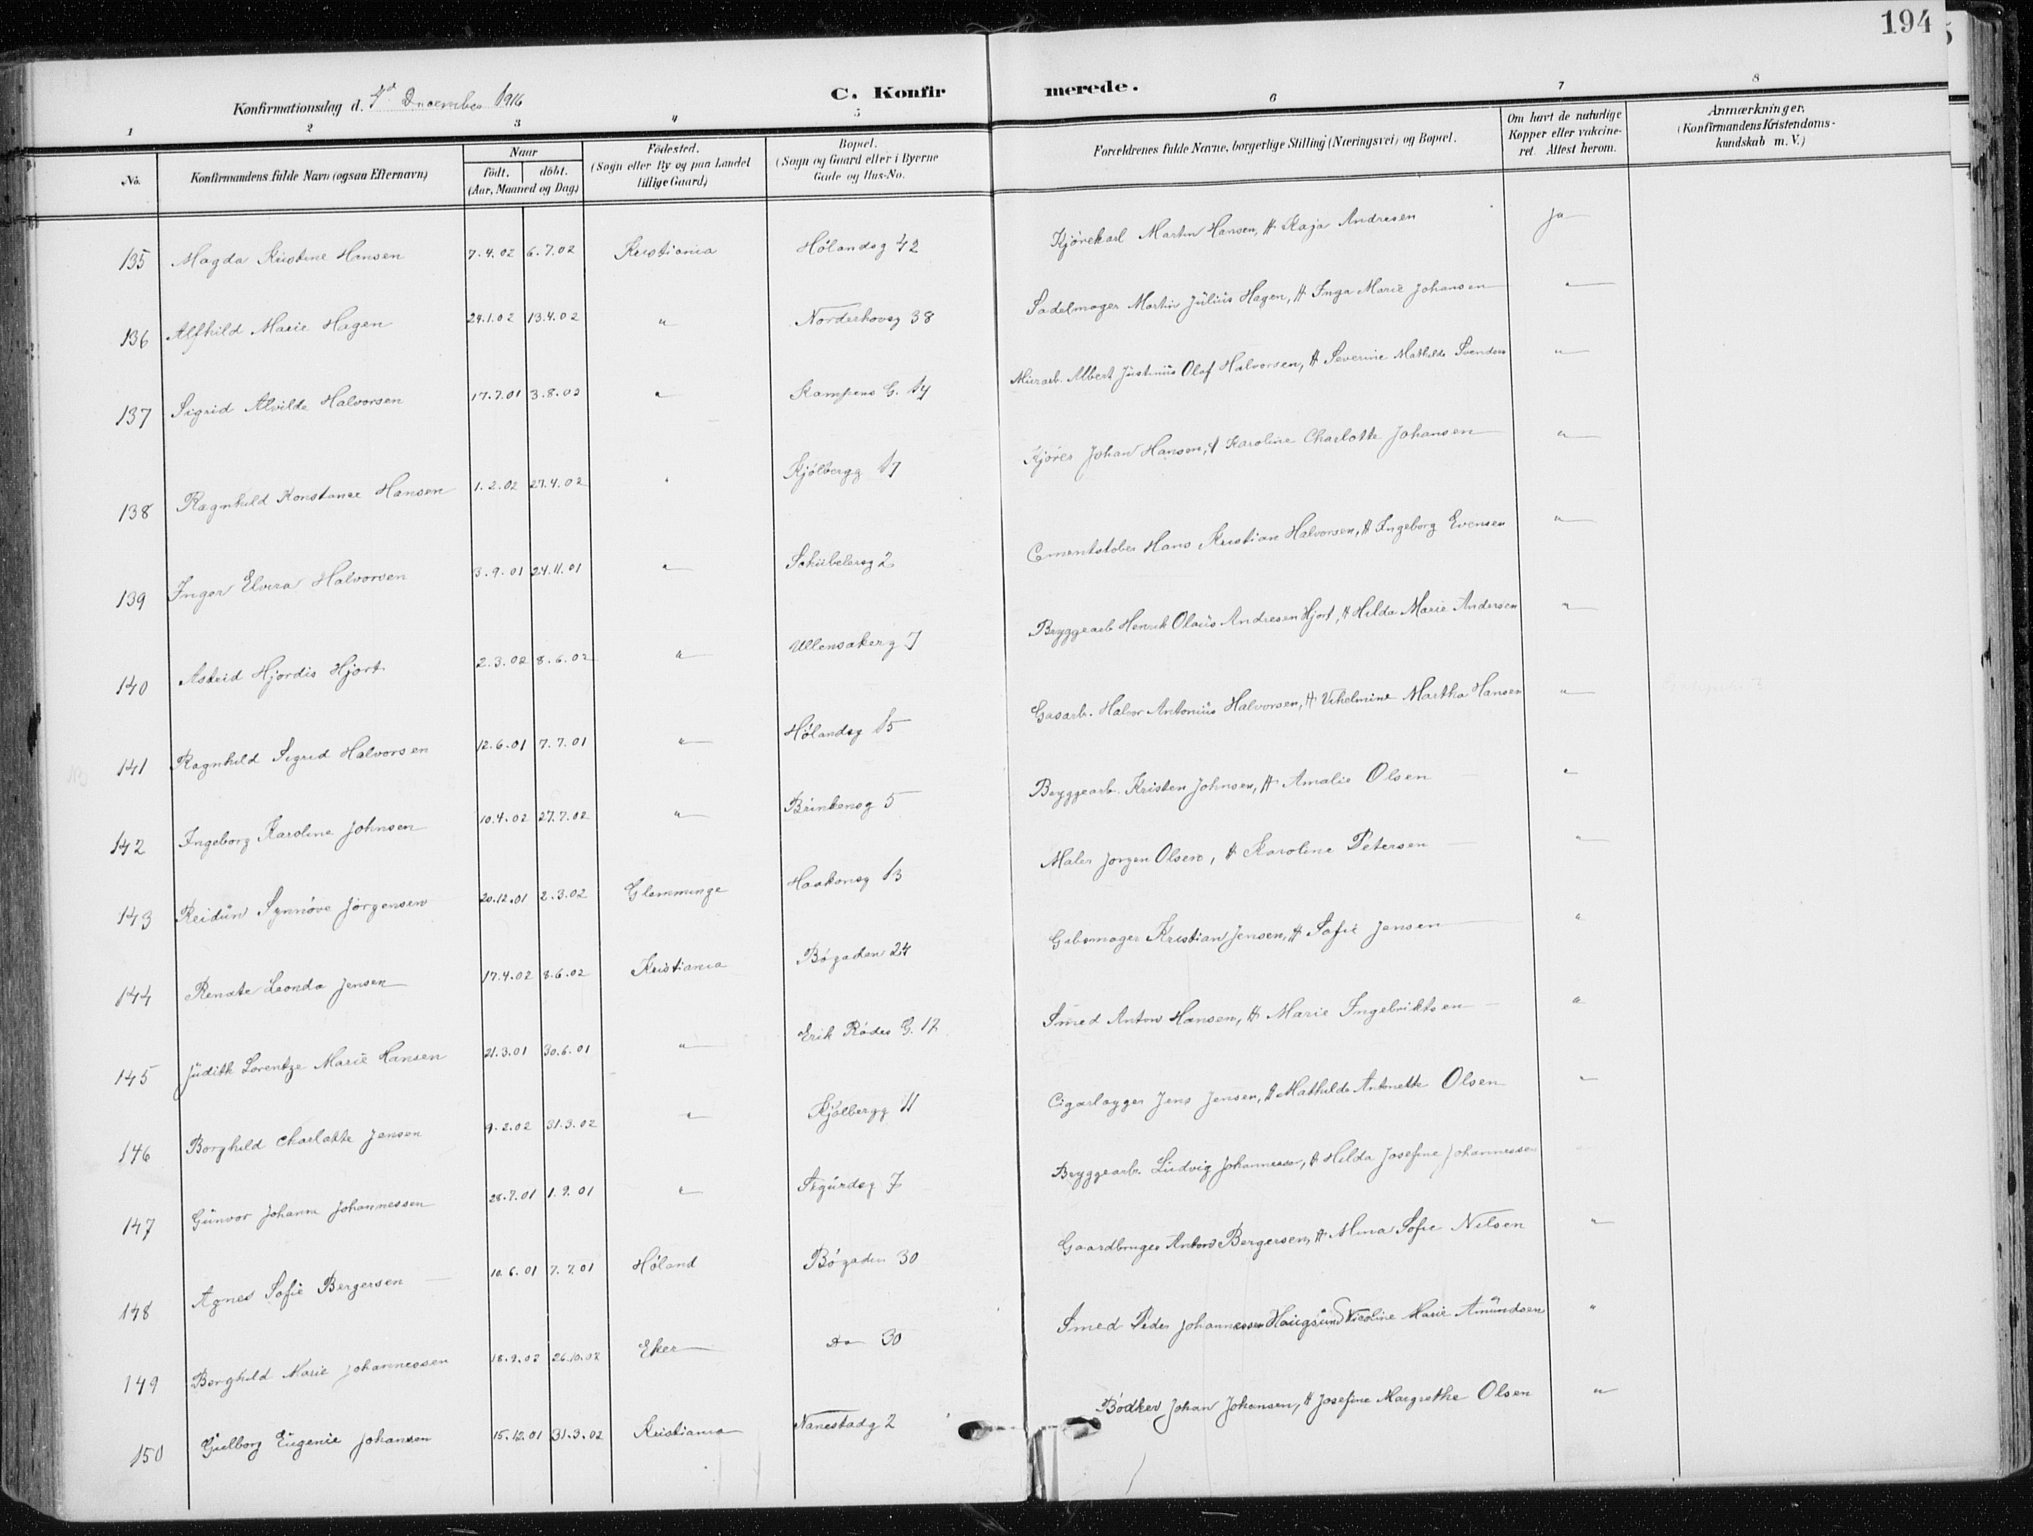 194
Konfirmationsdag d. December 1916
C. Konfirmerede.
1 2 3 4 5 6 7 8
No.
Konfirmandens fulde Navn (ogsaa Efternavn)
Naar
födt. döbt.
(Aar, Maaned og Dag)
Födested.
(Sogn eller By og paa Landet
tillige Gaard)
Bopæl.
(Sogn og Gaard eller i Byerne
Gade og Hus-No.
Forældrenes fulde Navne, borgerlige Stilling (Næringsvei) og Bopæl.
Om havt de naturlige
Kopper eller vakcine-
ret. Attest herom.
Anmærkninger.
(Konfirmandens Kristendoms-
kundskab m. V.)
135 Magda Kristine Hansen 7.4.02 6.7.02 Kristiania Hølandsg 42 Kjørekarl Martin Hansen, & Kaja Andresen Ja
136 Alfhild Marie Hagen 24.1.02 13.4.02 " Norderhovsg 38 Sadelmager Martin Julius Hagen, & Inga Marie Johansen "
137 Sigrid Alvilde Halvorsen 17.7.01 3.8.02 " Kampens G. 14 Murarb. Albert Justinus Olaf Halvorsen, & Severine Mathilde Svendsen "
138 Ragnhild Konstanse Hansen 1.2.02 27.4.02 " Kjølbergg 17 Kjører Johan Hansen, & Karoline Charlotte Johansen "
139 Inger Elvira Halvorsen 3.9.01 24.11.01 " Schübelersg 2 Cementstøber Hans Kristian Halvorsen, & Ingeborg Evensen "
140 Astrid Hjordis Hjort 2.3.02 8.6.02 " Ullensakerg 7 Bryggearb Henrik Olaus Andresen Hjort, & Hilda Marie Andersen "
141 Ragnhild Sigrid Halvorsen 12.6.01 7.7.01 " Hølandsg 15 Gasarb. Halvor Antonius Halvorsen, & Vilhelmine Martha Hansen "
142 Ingeborg Karoline Johnsen 10.4.02 27.7.02 " Brinkensg 5 Bryggearb. Kristen Johnsen, & Amalie Olsen "
143 Reidun Synnøve Jørgensen 20.12.01 2.3.02 Glemminge Haakonsg 13 Maler Jørgen Olsen, & Karoline Petersen "
144 Renate Leonda Jensen 17.4.02 8.6.02 Kristiania Bøgaden 24 Gibsmager Kristian Jensen, & Sofie Jensen "
145 Judith Lorentze Marie Hansen 21.3.01 30.6.01 " Erik Rødes G. 12 Smed Anton Hansen, & Marie Ingebriktsen "
146 Borghild Charlotte Jensen 9.2.02 31.3.02 " Kjølbergg 11 Cigarlager Jens Jensen, & Mathilde Antonette Olsen "
147 Gunvor Johanne Johannessen 28.7.01 1.9.01 " Sigurdsg 7 Bryggearb. Ludvig Johannessen, & Hilda Josefine Johannessen
148 Agnes Sofie Bergersen 10.6.01 7.7.01 Høland Bøgaden 30 Gaardbruger Anton Bergersen, & Mina Sofie Nilsen "
149 Borghild Marie Johannessen 18.9.02 26.10.02 Eker Do 30 Smed Peder Johannessen Haugsund & Nicoline Marie Amundsen "
150 Gudborg Eugenie Johansen 15.12.01 31.3.02 Kristiania Nanestadg 2 Bødker Johan Johansen, & Josefine Margrethe Olsen "